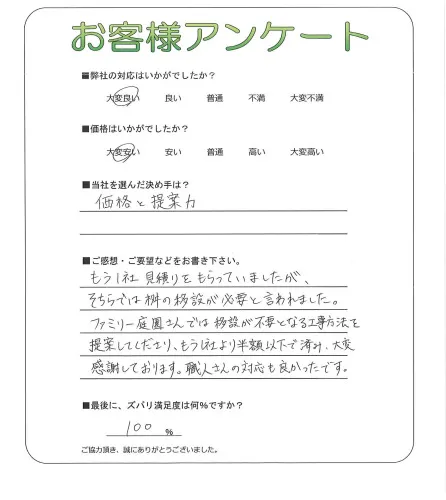 お客様アンケート
■弊社の対応はいかがでしたか？
大変良い　良い　普通　不満　大変不満
■価格はいかがでしたか？
大変安い　安い　普通　高い　大変高い
■当社を選んだ決め手は？
価格と提案力
■ご感想・ご要望などをお書き下さい。
もう1社見積りをもらっていましたが、
そちらでは桝の移設が必要と言われました。
ファミリー庭園さんでは移設が不要となる工事方法を
提案してくださり、もう1社より半額以下で済み、大変
感謝しております。職人さんの対応も良かったです。
■最後に、ズバリ満足度は何％ですか？
100 ％
ご協力頂き、誠にありがとうございました。